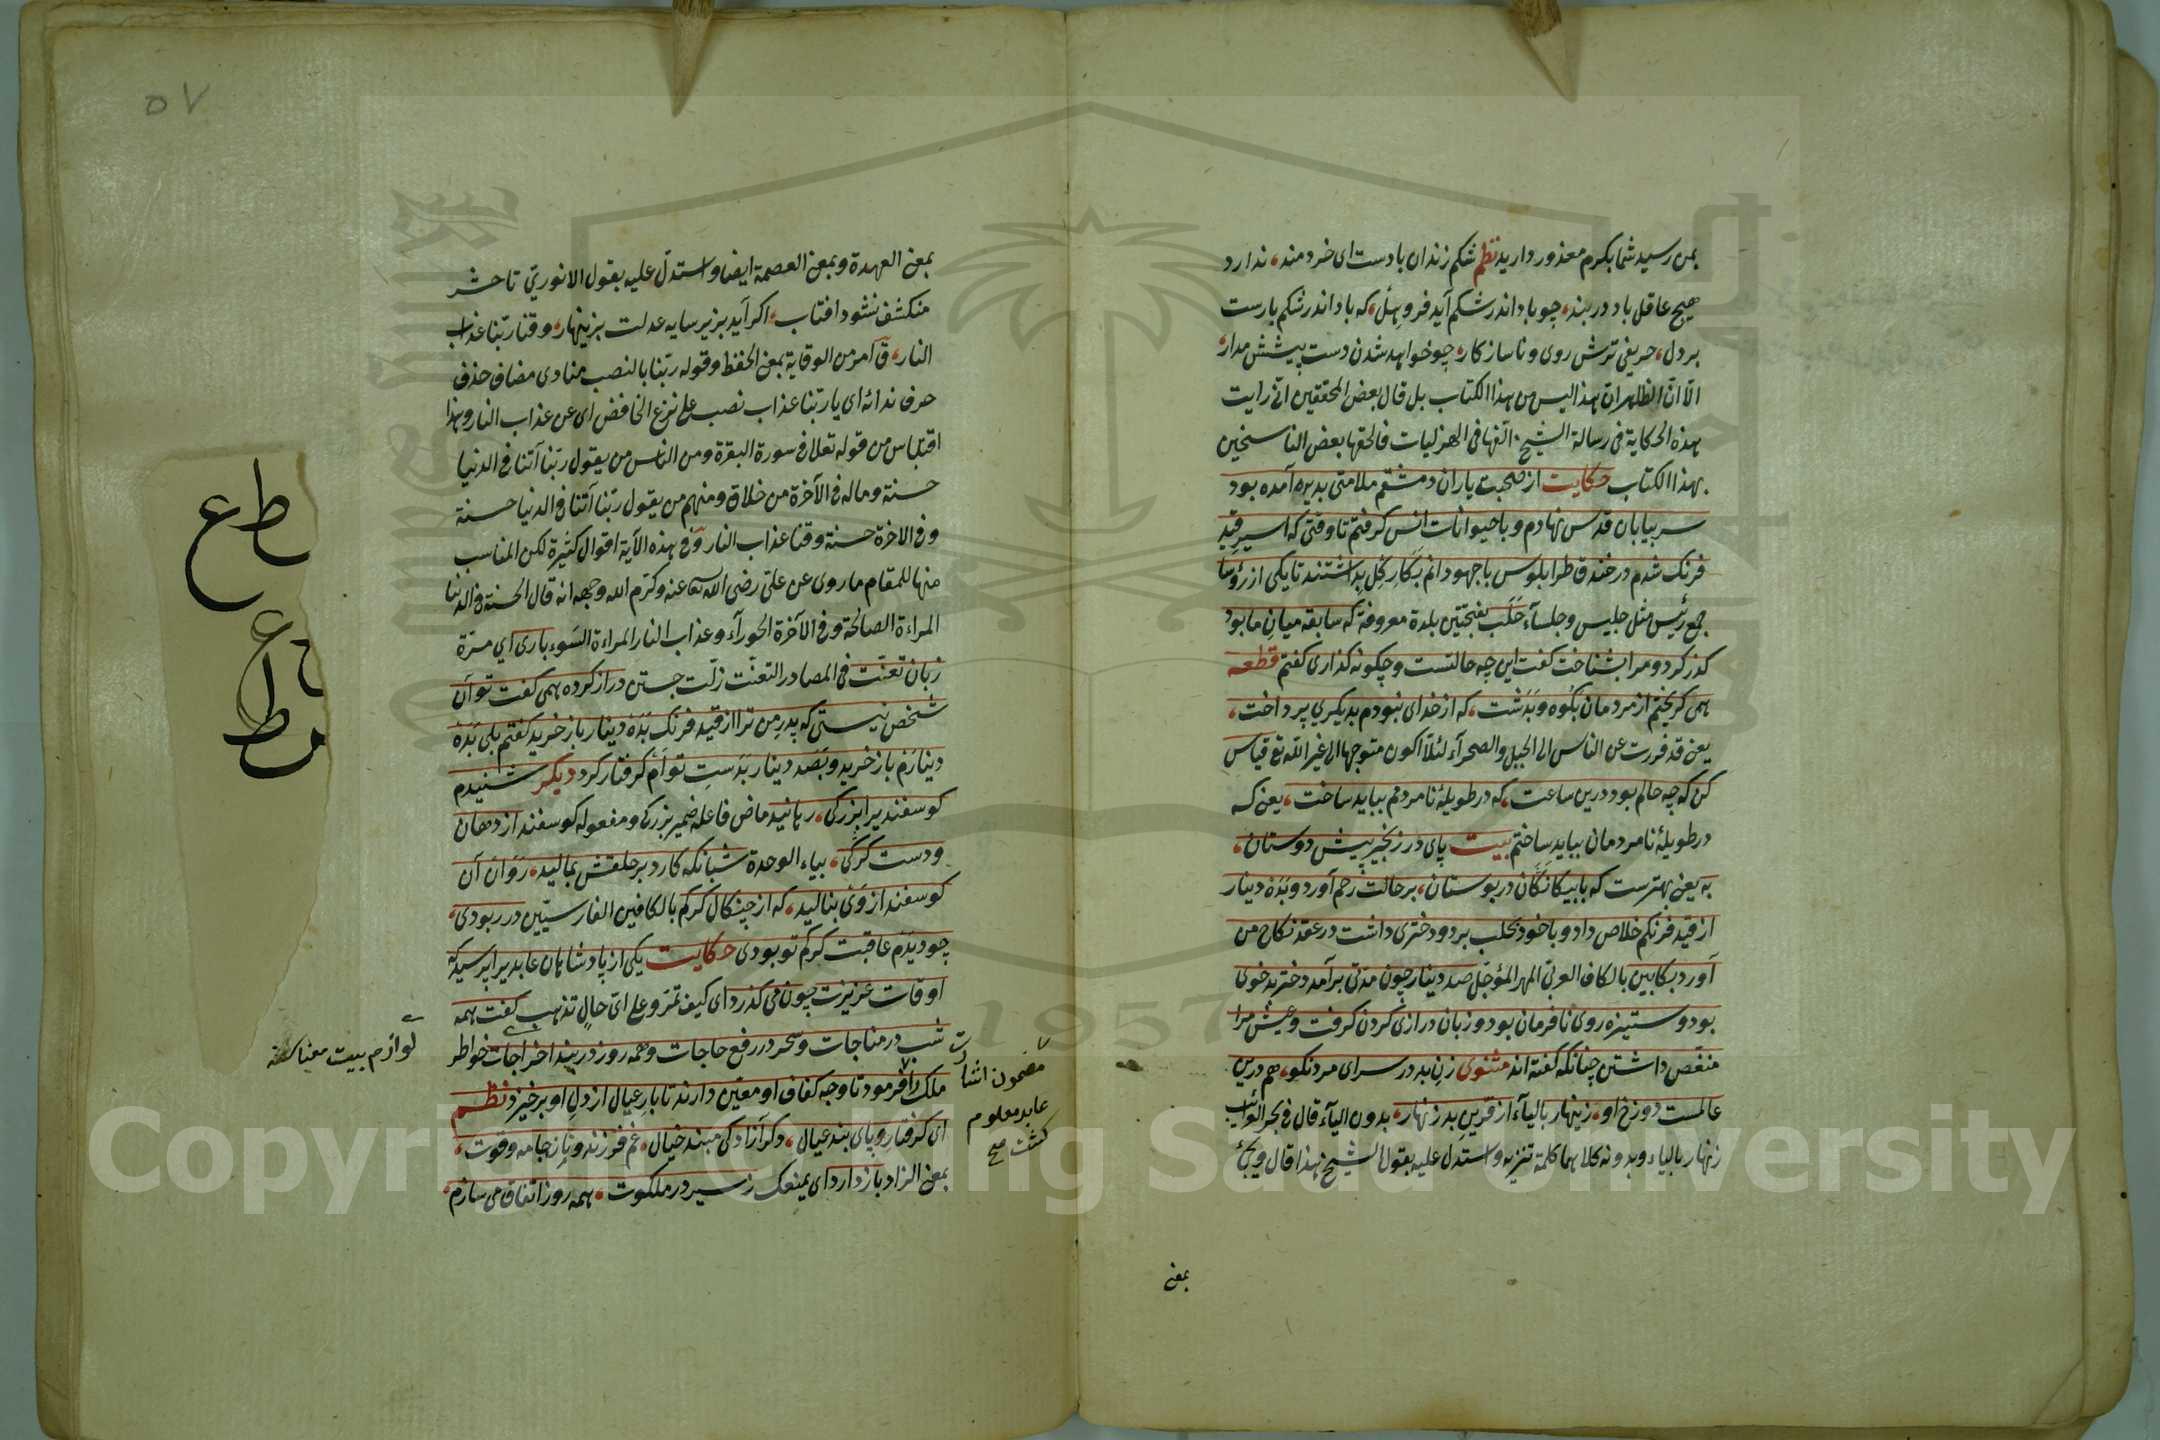 بمن رسید شما بکرم معذور دارید نظم شکم زندان بادست ای خردمند، ندارد
هیچ عاقل باد دربند، چو باد اندر شکم آید فروهل، که باد اندر شکم بارست
بر دل، حریفی ترش روی و ناسازکار، چو خواهد شدن دست پیشش مدار،
الا ان الظاهر ان هذا لیس من هذا الکتاب بل قال بعض المحققین انی رایت
هذه الحکایة فی رسالة الشیخ الفها فی الهزلیات فالحقها بعض الناسخین
بهذا الکتاب حکایت از صحبت یاران دمشقم ملامتی بدیده آمده بود
سر بیابان قدس نهادم و با حیوانات انس کرفتم تا وقتی که اسیر قید
فرنک شدم در خندق طرابلوس با جهودانم بکار کل بداشتند تا یکی از رؤسا
جمع رئیس مثل جلیس وجلساء حلب بفتحتین بلدة معروفة که سابقه میان ما بود
کذر کرد و مرا بشناخت کفت این چه حالتست و چکونه کذاری کفتم قطعه
همی کریختم از مردمان بکوه و بدشت، که از خدای نبودم بدیکری پرداخت،
یعنی قد فررت عن الناس الی الجبل والصحرآء لئلا اکون متوجها الی غیر الله تع قیاس
کن که چه حالم بود درین ساعت، که در طویلۀ نامردمم بباید ساخت، یعنی که
در طویلۀ نامردمان بباید ساختم بیت پای در زنجیر پیش دوستان،
به یعنی بهترست که با بیکانکان در بوستان، بر حالت رحم آورد و بده دینار
از قید فرنکم خلاص داد و با خود بحلب برد و دختری داشت در عقد نکاح من
آورد بکابین بالکاف العربی المهر المؤجل صد دینار چون مدتی برآمد دختر بدخوی
بود و ستیزه روی نافرمان بود و زبان درازی کردن کرفت و عیش مرا
منغص داشتن چنانکه کفته اند مثنوی زن بد در سرای مرد نکو، هم درین
عالمست دوزخ او، زینهار بالیآء از قرین بد زنهار، بدون الیآء قال فی بحر الغرائب
زنهار بالیاء وبدونه کلاهما کلمة تنزیه واستدل علیه بقول الشیخ هذا قال ویجئ
بمعنی
٥٧
بمعنی العهدة وبمعنی العصمة ایضا واستدل علیه بقول الانوری تا حشر
منکسف نشود افتاب، اکر آید بزیر سایه عدلت بزینهار، وقنا ربنا عذاب
النار، ق امر من الوقایة بمعنی الحفظ وقوله ربنا بالنصب منادی مضاف حذف
حرف ندائه ای یا ربنا عذاب نصب علی نزع الخافض ای عن عذاب النار وهذا
اقتباس من قوله تعالی فی سورة البقرة ومن الناس من یقول ربنا آتنا فی الدنیا
حسنة وماله فی الآخرة من خلاق ومنهم من یقول ربنا آتنا فی الدنیا حسنة
وفی الاخرة حسنة وقنا عذاب النار وفی هذه الآیة اقوال کثیرة لکن المناسب
منها للمقام ما روی عن علی رضی الله تعا عنه وکرم الله وجهه انه قال الحسنة فی الدنیا
المراءة الصالحة وفی الآخرة الحورآء وعذاب النار المراءة السوء باری ای مرة
زبان تعنت فی المصادر التعنت زلت جستن دراز کرده همی کفت تو آن
شخص نیستی که پدر من ترا از قید فرنک بده دینار باز خرید کفتم بلی بده
دینارم باز خرید و بصد دینار بدست توام کرفتار کرد دیکر شنیدم
کوسفندی را بزرکی، رهانید ماض فاعله ضمیر بزرکی ومفعوله کوسفند از دهان
ودست کرکی، بیاء الوحدة شبانکه کارد بر حلقش بمالید، روان آن
کوسفند از وی بنالید، که از چنکال کرکم بالکافین الفارسیین در ربودی،
چو دیدم عاقبت کرکم تو بودی حکایت یکی از پادشاهان عابدی را پرسید که
اوقات عزیزت چون می کذرد ای کیف تمر وعلی ای حال تذهب کفت همه
شب در مناجات و سحر در رفع حاجات و همه روز در بند اخراجات خواطر
ملک را فرمود تا وجه کفاف او معین دارند تا بار عیال از دل او برخیزد نظم
ای کرفتار و پای بند عیال، دکر آزادکی مبند خیال، غم فرزند و نان و جامه و قوت،
بمعنی الزاد باز دارد ای یمنعک ز سیر در ملکوت، همه روز اتفاق می سازم،
مضمون اشارت
عابد معلوم
کشت صح
لوازم بیت معنا